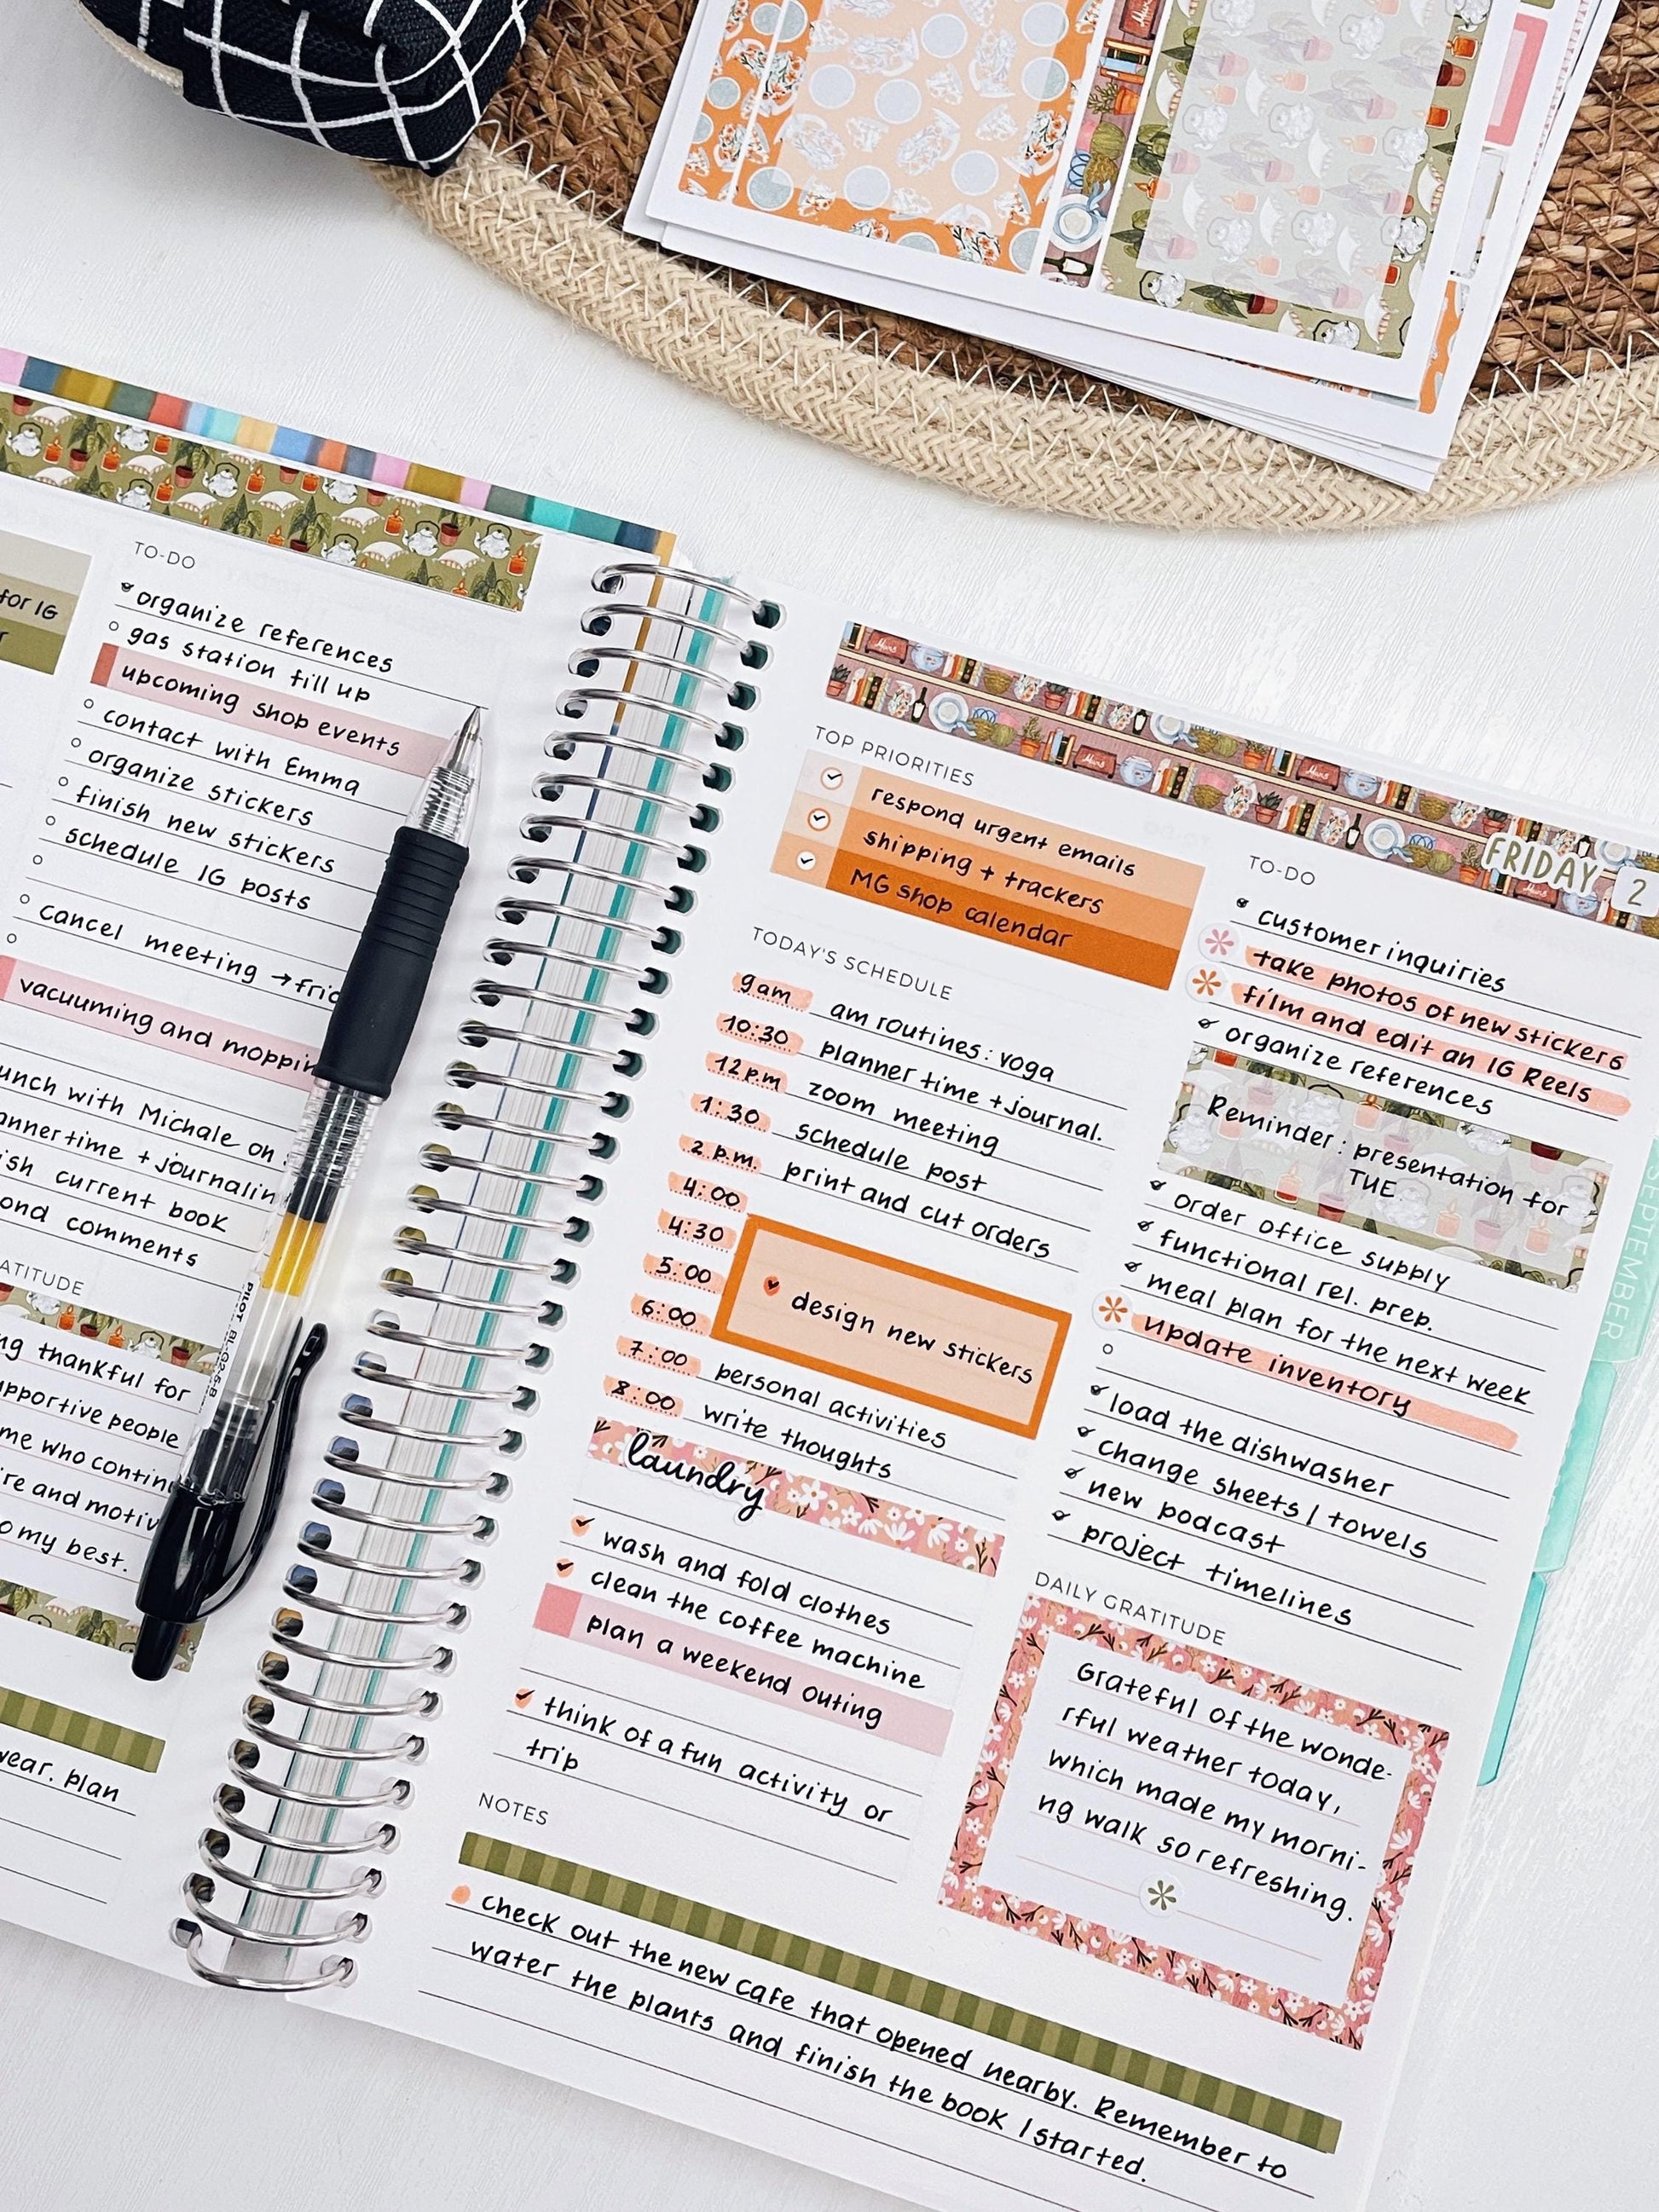 for IG
TO-DO
organize references
gas station fill up
upcoming shop events
contact with Emma
organize stickers
finish new stickers
schedule IG posts
cancel meeting → fri
vacuuming and moppin
unch with Michale on
anner time + journalin
ish current book
ond comments
ATITUDE
ng thankful for
upportive people
me who contin
re and motiv
o my best.
wear. plan
PILOT BL-G2-5-B
TOP PRIORITIES
respond urgent emails
shipping + trackers
MG shop calendar
TODAY'S SCHEDULE
9am am routines: yoga
10:30 planner time + journal.
12pm zoom meeting
1:30 schedule post
2 p.m. print and cut orders
4:00
4:30
5:00
design new stickers
6:00
7:00 personal activities
8:00 write thoughts
laundry
wash and fold clothes
clean the coffee machine
plan a weekend outing
think of a fun activity or
trip
FRIDAY 2
TO-DO
customer inquiries
take photos of new stickers
film and edit an IG Reels
organize references
Reminder: presentation for
TUE
order office supply
functional rel. prep.
meal plan for the next week
update inventory
load the dishwasher
change sheets / towels
new podcast
project timelines
DAILY GRATITUDE
Grateful of the wonde-
rful weather today,
which made my morni-
ng walk so refreshing.
NOTES
check out the new cafe that opened nearby. Remember to
water the plants and finish the book I started.
SEPTEMBER